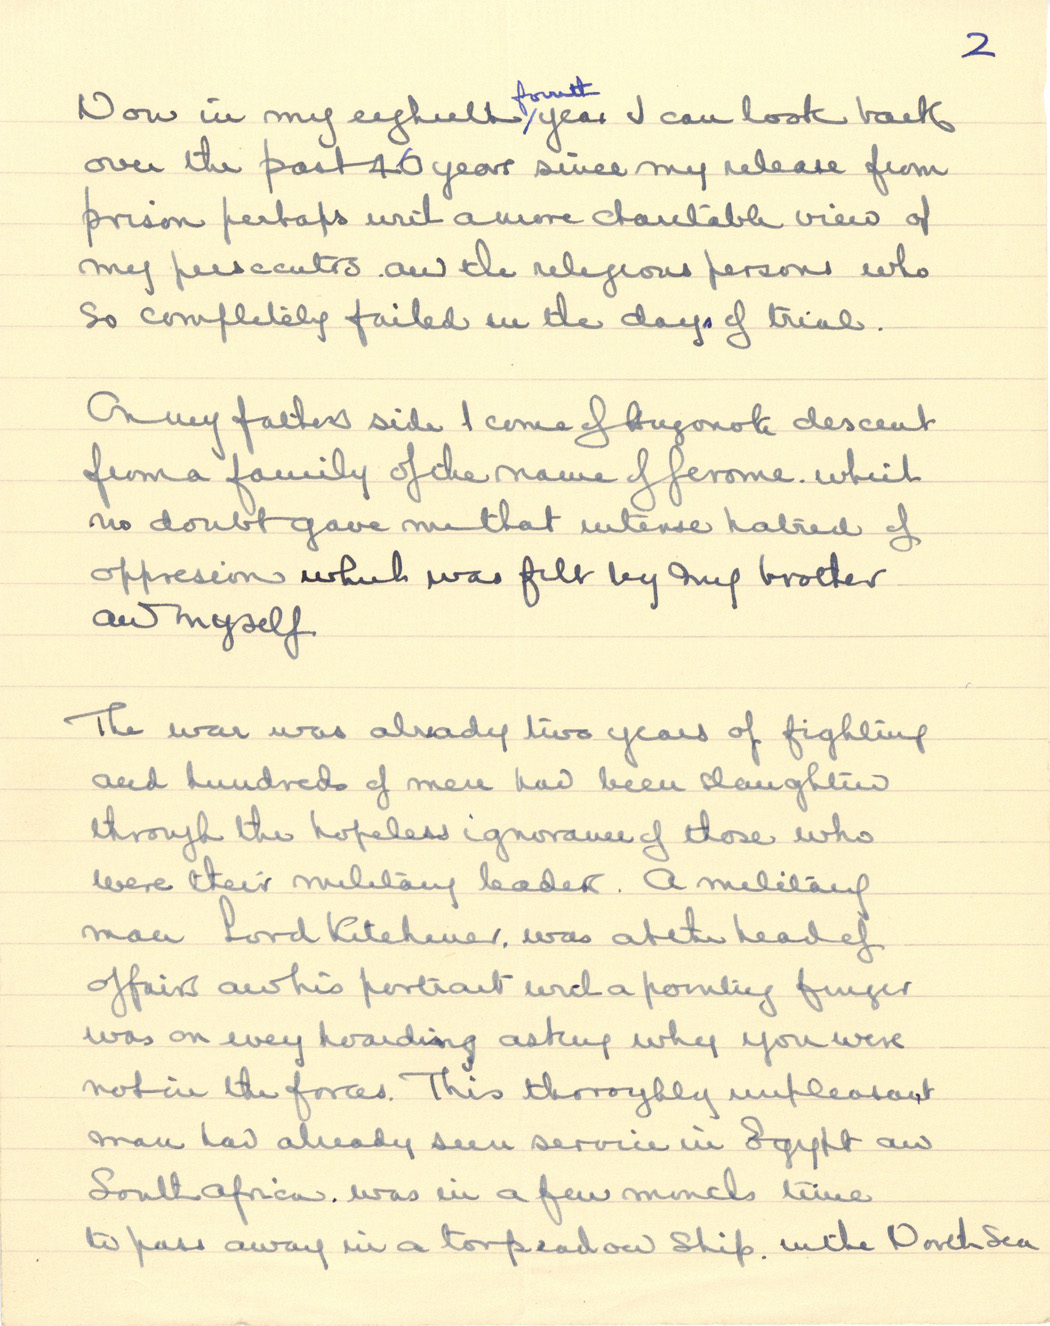 2
fourth
Now in my eightieth / year I can look back
over the past 46 years since my release from
prison perhaps with a more charitable view of
my persecutors and the religious persons who
so completely failed in the days of trial.
On my fathers side I come of Hugonot descent
from a family of the name of Jerome. which
no doubt gave me that intense hatred of
oppresion which was felt by my brother
and myself
The war was already two years of fighting
and hundreds of men had been slaughted
through the hopeless ignorance of those who
were their military leaders. A military
man Lord Kitchener, was at the head of
affairs and his portrait with a pointing finger
was on every hoarding asking why you were
not in the forces. This thoroghly unpleasant
man had already seen service in Egypt and
South Africa. was in a few months time
to pass away in a torpeadoed ship. in the North Sea